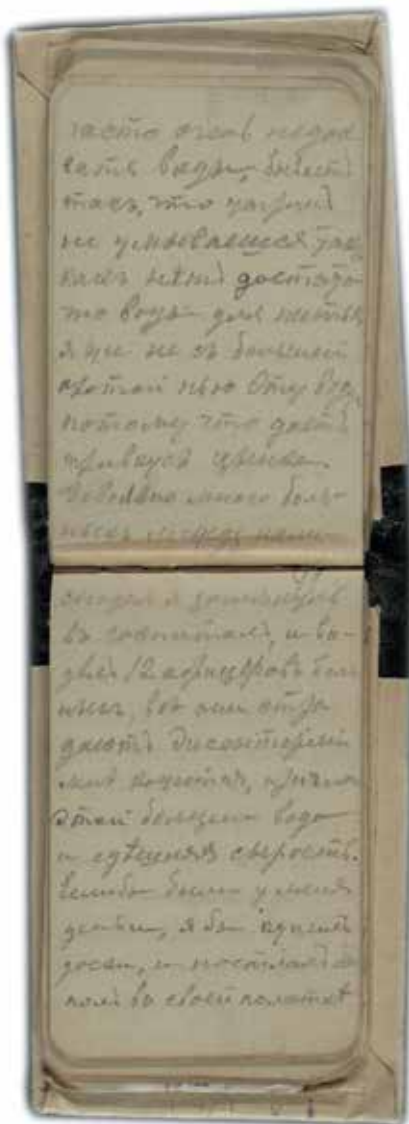 часто очень недос
вать воды, бываетъ
такъ, что
не умываешься, такъ
какъ нѣтъ достато
но воды для питья,
я уже не съ большой
охотой пью эту воду,
потому что даетъ
привкусъ
Довольно много боль-
ныхъ между нами
сегодня я
въ госпиталѣ, и ви-
дѣлъ 12 офицеровъ боль
ныхъ, всѣ они стра
даютъ Дисентеріей
причина
этой болѣзни вода
и здѣшняя сырость.
Если бы были у меня
деньги, я бы купилъ
досокъ, и
полъ въ своей палаткѣ